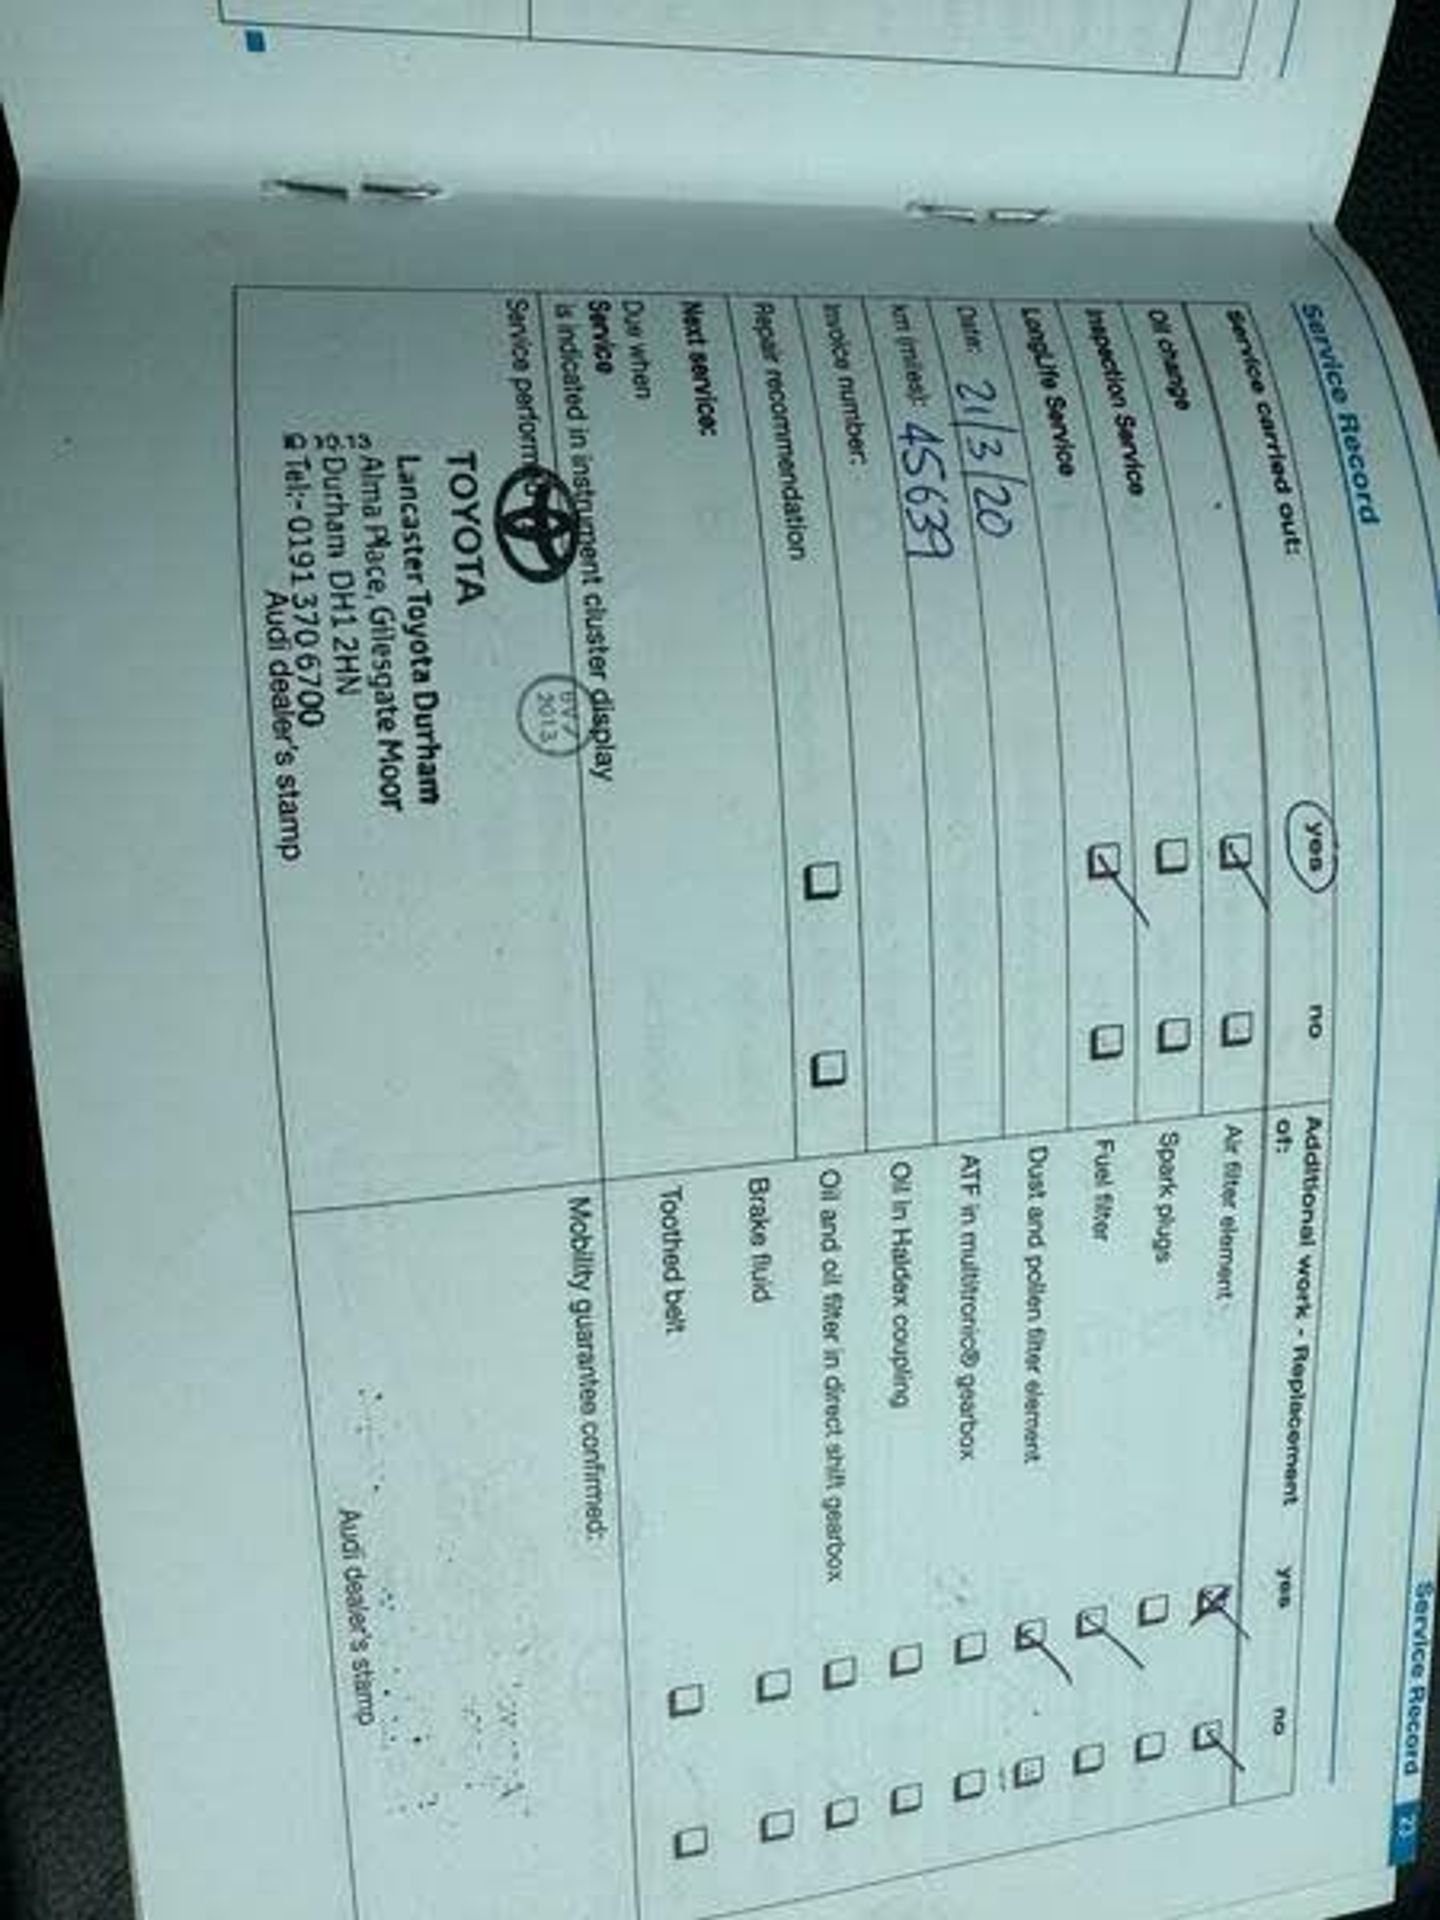 Service Record 23
Service Record
Service carried out: yes no
Oil change
Inspection Service
LongLife Service
Date: 21/3/20
km (miles): 45639
Invoice number:
Repair recommendation
Next service:
Due when
Service
is indicated in instrument cluster display
Service perform
BV7
2013
TOYOTA
Lancaster Toyota Durham
Alma Place, Gilesgate Moor
Durham DH1 2HN
Tel:- 0191 370 6700
Audi dealer's stamp
Additional work - Replacement yes no
of:
Air filter element
Spark plugs
Fuel filter
Dust and pollen filter element
ATF in multitronic® gearbox
Oil in Haldex coupling
Oil and oil filter in direct shift gearbox
Brake fluid
Toothed belt
Mobility guarantee confirmed:
Audi dealer's stamp